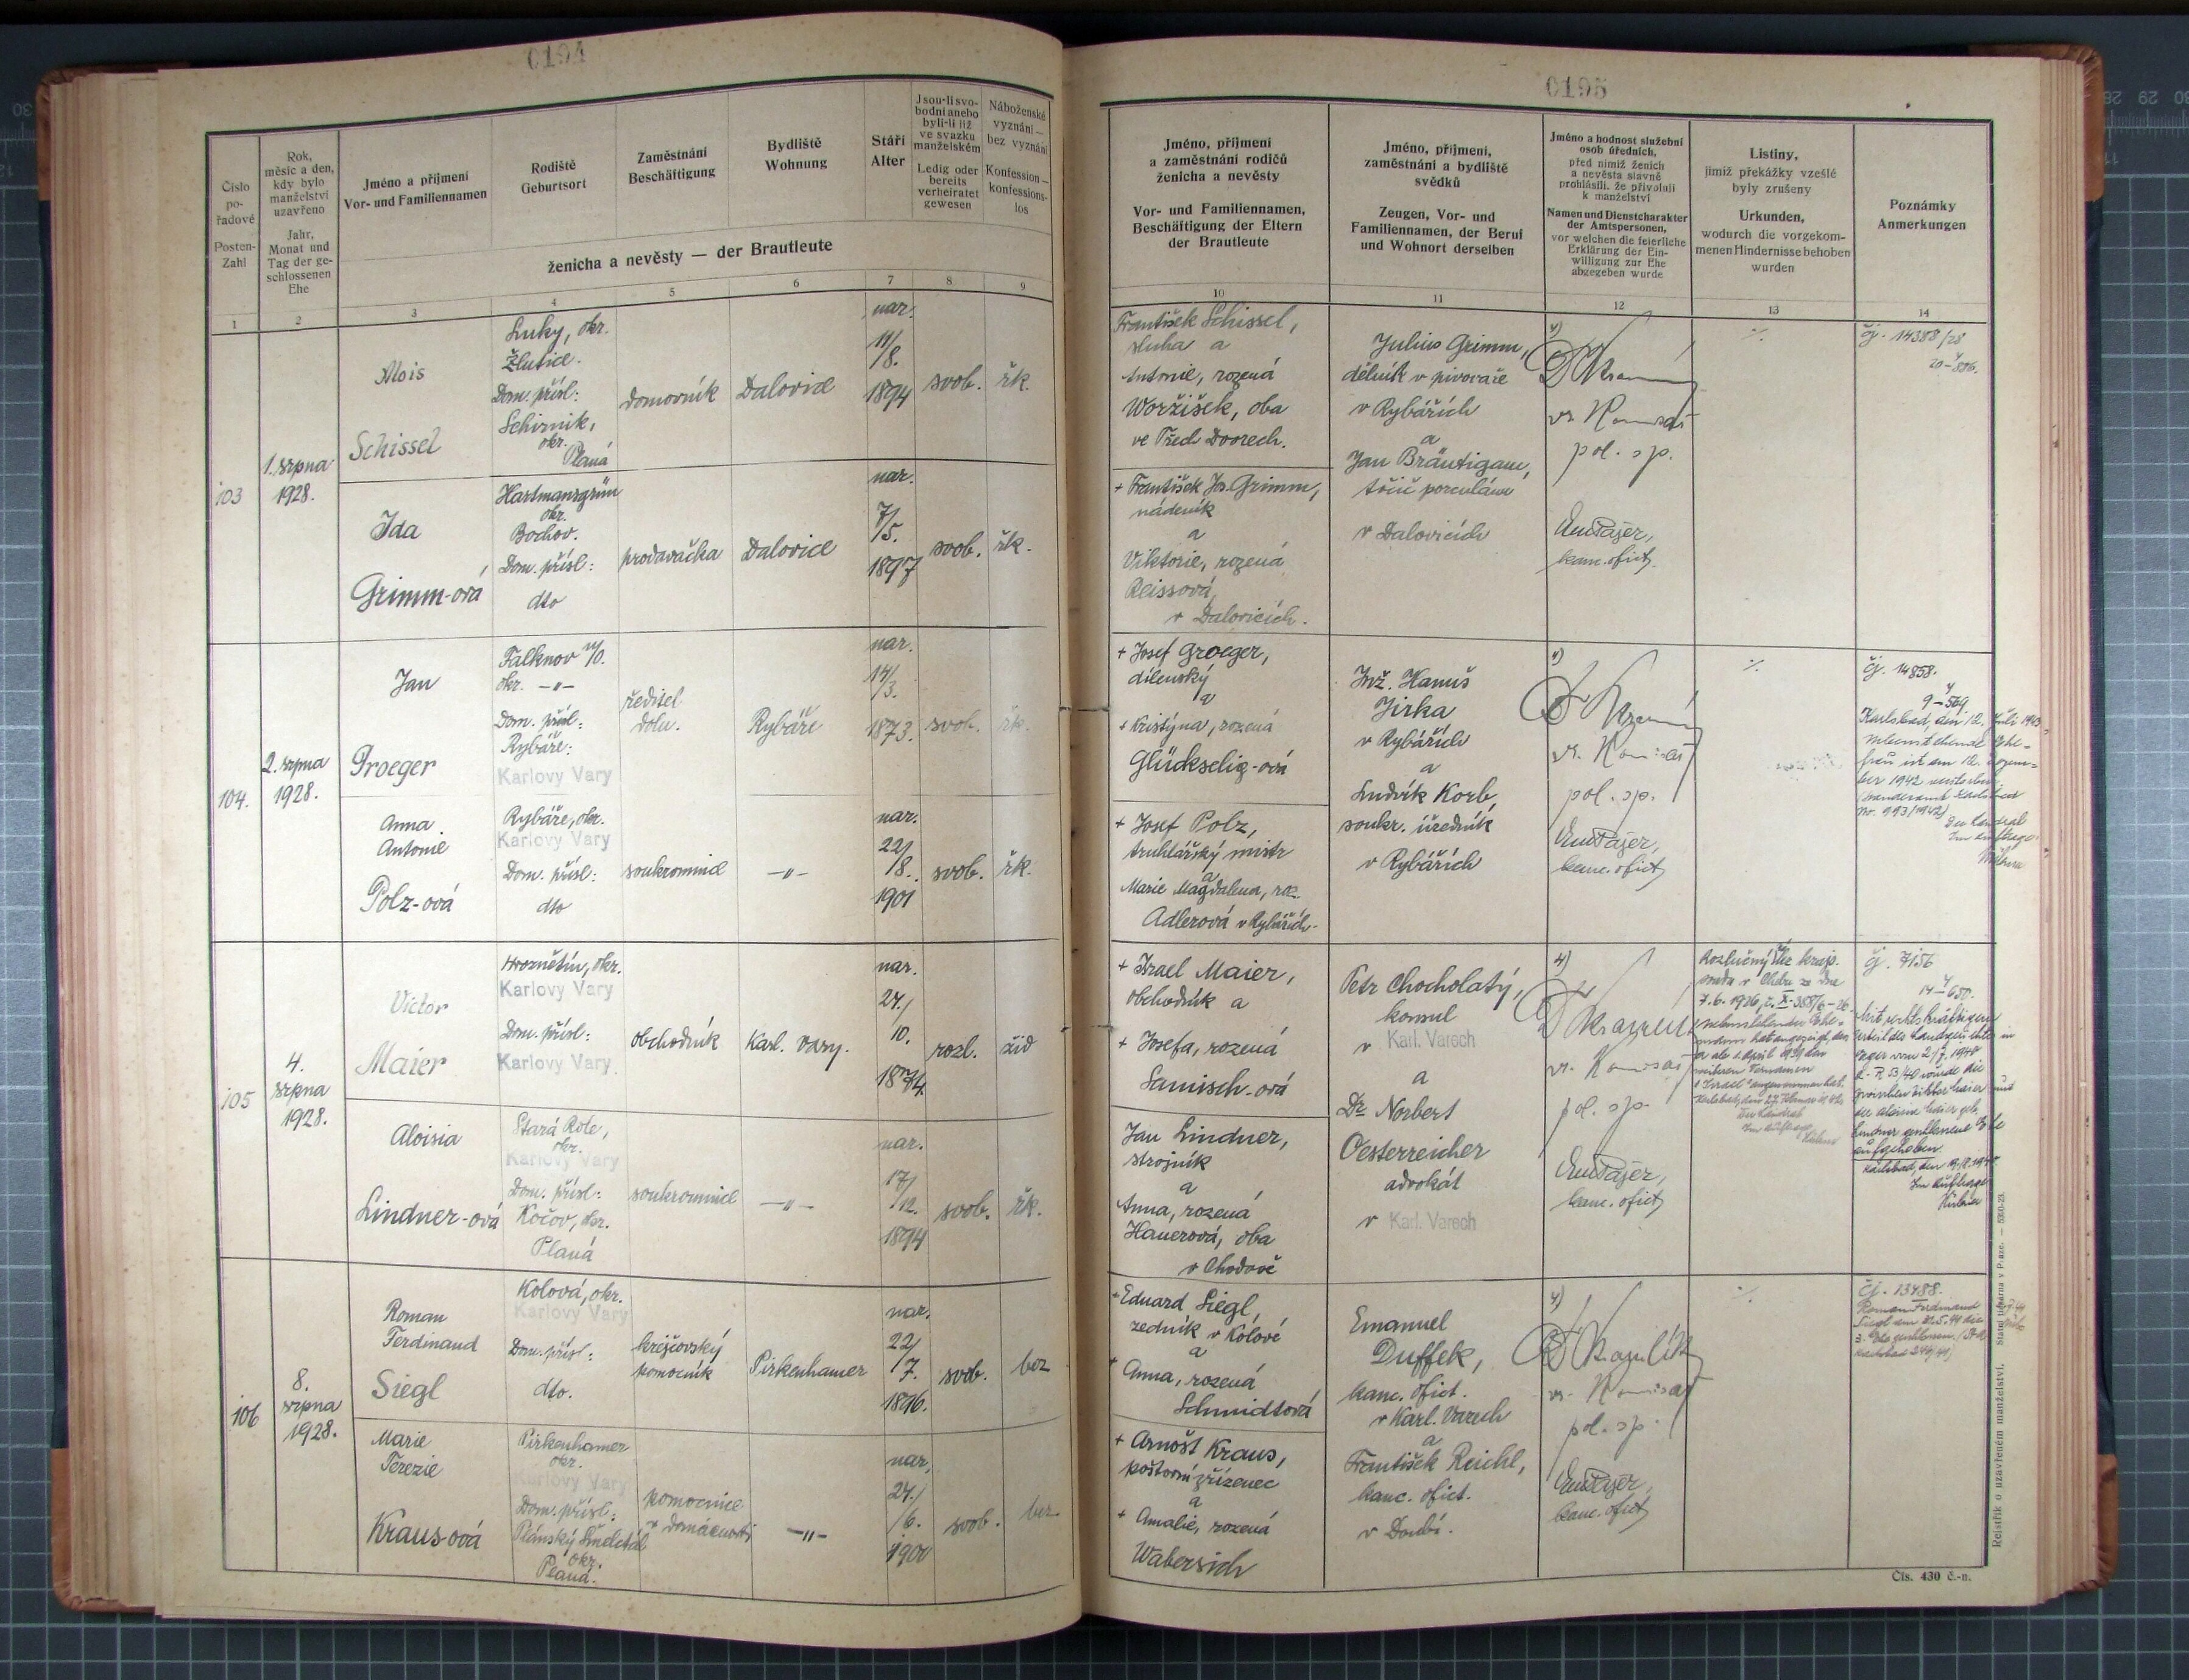 0194
Číslo pořadové
Posten-Zahl
Rok, měsíc a den, kdy bylo manželství uzavřeno
Jahr, Monat und Tag der geschlossenen Ehe
Jméno a přijmení
Vor- und Familiennamen
Rodiště
Geburtsort
Zaměstnání
Beschäftigung
Bydliště
Wohnung
Stáří
Alter
Jsou-li svobodni anebo byli-li již ve svazku manželském
Ledig oder bereits verheiratet gewesen
Náboženské vyznání — bez vyznání
Konfession — konfessionslos
ženicha a nevěsty — der Brautleute
1 2 3 4 5 6 7 8 9
103
1. srpna
1928.
Alois
Schissel
Luky, okr.
Žlutice.
Dom. přísl:
Schirnik,
okr.
Planá
domovník
Dalovice
nar.
11/
8.
1894
svob.
řk.
Ida
Grimm-ová
Hartmansgrün
okr.
Bochov.
Dom. přísl:
dto
prodavačka
Dalovice
nar.
7/
5.
1897
svob.
řk.
104.
2. srpna
1928.
Jan
Groeger
Falknov n/O.
okr. -"-
Dom. přísl:
Rybáře:
Karlovy Vary
ředitel
dolu.
Rybáře
nar.
14/
3.
1873.
svob.
řk.
Anna
Antonie
Polz-ová
Rybáře, okr.
Karlovy Vary
Dom. přísl:
dto
soukromnice
-"-
nar.
22/
8.
1901
svob.
řk.
105
4.
srpna
1928.
Victor
Maier
Hroznětín, okr.
Karlovy Vary
Dom. přísl:
Karlovy Vary
obchodník
Karl. Vary.
nar.
24/
10.
1874.
rozl.
žid
Aloisia
Lindner-ová
Stará Role,
okr.
Karlovy Vary
Dom. přísl:
Kočov, okr.
Planá
soukromnice
-"-
nar.
17/
12.
1894
svob.
řk.
106
8.
srpna
1928.
Roman
Ferdinand
Siegl
Kolová, okr.
Karlovy Vary
Dom. přísl:
dto.
krejčovský
pomocník
Pirkenhamer
nar.
22/
7.
1896.
svob.
bez
Marie
Terezie
Kraus-ová
Pirkenhamer
okr.
Karlovy Vary
Dom. přísl:
okr.
Planá.
pomocnice
v domácnosti
-"-
nar.
24/
6.
1900
svob.
bez
0195
Jméno, přijmení a zaměstnání rodičů ženicha a nevěsty
Vor- und Familiennamen, Beschäftigung der Eltern der Brautleute
Jméno, přijmení, zaměstnání a bydliště svědků
Zeugen, Vor- und Familiennamen, der Beruf und Wohnort derselben
Jméno a hodnost služební osob úředních, před nimiž ženich a nevěsta slavně prohlásili, že přivolují k manželství
Namen und Dienstcharakter der Amtspersonen, vor welchen die feierliche Erklärung der Einwilligung zur Ehe abgegeben wurde
Listiny, jimiž překážky vzešlé byly zrušeny
Urkunden, wodurch die vorgekommenen Hindernisse behoben wurden
Poznámky
Anmerkungen
10 11 12 13 14
František Schissel,
sluha a
Antonie, rozená
Woržišek, oba
ve Třech Dvorech.
Julius Grimm,
dělník v pivovaře
v Rybářích
a
Jan Bräutigam,
točič porculánu
v Dalovicích
vr. Komisař
pol. sp.
kanc. ofict.
čj. 14388/28
+ František Jos. Grimm,
nádeník
a
Viktorie, rozená
Reissová,
v Dalovicích.
+ Josef Groeger,
dílenský
a
+ Kristýna, rozená
Glückselig-ová
Inž. Hanuš
Jirka
v Rybářích
a
Ludvík Korb,
soukr. úředník
v Rybářích
vr. Komisař
pol. sp.
kanc. ofict.
čj. 14858.
9-569
Karlsbad, den 12. Juli 1943
Nebenstehende Ehe-
frau ist am 12. Dezem-
ber 1942 verstorben
(Standesamt Karlsbad
Nr. 993/1942)
Der Landrat
Im Auftrage:
+ Josef Polz,
truhlářský mistr
a
Marie Magdalena, roz.
Adlerová v Rybářích.
+ Israel Maier,
obchodník a
+ Josefa, rozená
Samisch-ová
Petr Chocholatý,
konsul
v Karl. Varech
a
Dr. Norbert
Oesterreicher
advokát
v Karl. Varech
vr. Komisař
pol. sp.
kanc. ofict.
čj. 7156
14-650.
Mit rechtskräftigem
Urteil des Landgerichtes in
Eger vom 2/7. 1940
aufgehoben.
Im Auftrage
Jan Lindner,
strojník
a
Anna, rozená
Hauerová, oba
v Chodově
+ Eduard Siegl,
zedník v Kolové
a
+ Anna, rozená
Schmidtová
Emanuel
Duffek,
kanc. ofict.
v Karl. Varech
a
František Reichl,
kanc. ofict.
v Doubí.
vr. Komisař
pol. sp.
kanc. ofict.
čj. 13488.
Roman Ferdinand
+ Arnošt Kraus,
poštovní zřízenec
a
+ Amalie, rozená
Wabersich
Rejstřík o uzavřeném manželství. Státní tiskárna v Praze.
Čís. 430 č.-n.